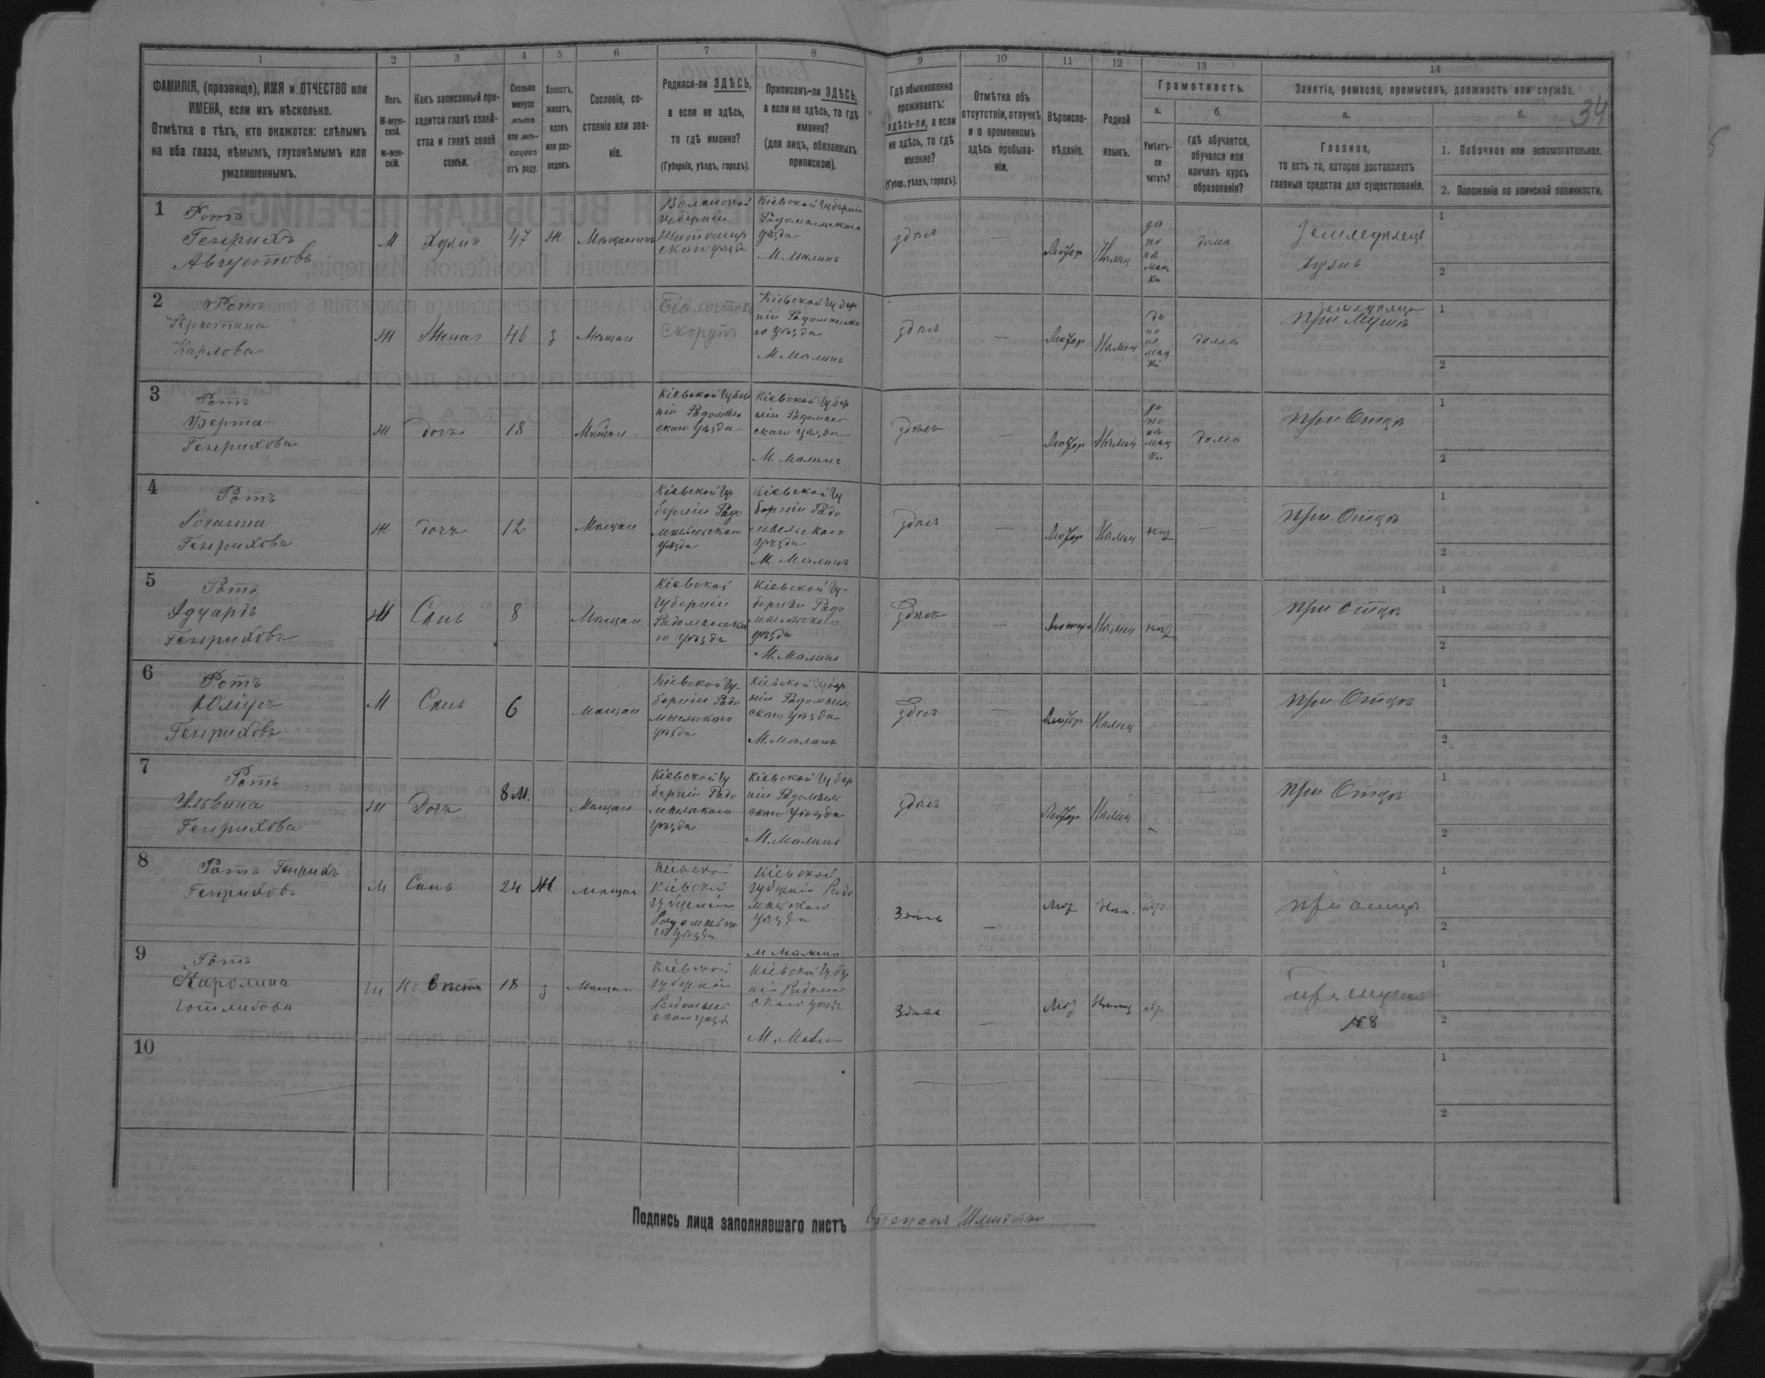 1 2 3 4 5 6 7 8 9 10 11 12 13 14
34
ФАМИЛІЯ, (прозвище), ИМЯ и ОТЧЕСТВО или
ИМЕНА, если ихъ нѣсколько.
Отмѣтка о тѣхъ, кто окажется: слѣпымъ
на оба глаза, нѣмымъ, глухонѣмымъ или
умалишеннымъ.
Полъ.
М-муж-
ской.
ж-жен-
скій.
Какъ записанный при-
ходится главѣ хозяй-
ства и главѣ своей
семьи.
Сколько
минуло
лѣтъ
или мѣ-
сяцевъ
отъ роду.
Холостъ,
женатъ,
вдовъ
или раз-
веденъ.
Сословіе, со-
стояніе или зва-
ніе.
Родился-ли ЗДѢСЬ,
а если не здѣсь,
то гдѣ именно?
(Губернія, уѣздъ, городъ).
Приписанъ-ли ЗДѢСЬ,
а если не здѣсь, то гдѣ
именно?
(для лицъ, обязанныхъ
припискою).
Гдѣ обыкновенно
проживаетъ:
здѣсь-ли, а если
не здѣсь, то гдѣ
именно?
(Губер., уѣздъ, городъ).
Отмѣтка объ
отсутствіи, отлучкѣ
и о временномъ
здѣсь пребыва-
ніи.
Вѣроиспо-
вѣданіе.
Родной
языкъ.
Грамотность.
а.
Умѣетъ-
ли
читать?
б.
гдѣ обучается,
обучался или
кончилъ курсъ
образованія?
Занятіе, ремесло, промыселъ, должность или служба.
а.
Главное,
то есть то, которое доставляетъ
главныя средства для существованія.
б.
1. Побочное или вспомогательное.
2. Положеніе по воинской повинности.
1 Ротъ
Генрихъ
Августовъ
М Хозяинъ 47 Ж Мѣщанинъ
Волынской
губерніи
Житомир
скаго уѣзда
Кіевской губерніи
Радомысльскаго
уѣзда
М. Малинъ
здѣсь — Лютер Нѣмец
да
по
нѣ
мец
ки
дома
Земледѣлецъ
Хозяинъ
1
2
2 Ротъ
Кристина
Карлова
Ж Жена 46 З Мѣщан
Кіевской Губер
ніи Радомысльско
го уѣзда
М. Малинъ
здѣсь — Лютер Нѣмец
дома
при Мужѣ
1
2
3 Ротъ
Берта
Генрихова
Ж Дочь 18 Мѣщан
Кіевской Губер
ніи Радомысль
скаго уѣзда
Кіевской Губер
ніи Радомысль
скаго уѣзда
М. Малинъ
здѣсь — Лютер Нѣмец
дома
при Отцѣ
1
2
4 Ротъ
Іоганна
Генрихова
Ж Дочь 12 Мѣщан
Кіевской Гу
берніи Радо
мысльскаго
уѣзда
Кіевской Гу
берніи Радо
мысльскаго
уѣзда
М. Малинъ
здѣсь — Лютер Нѣмец нѣт —
при Отцѣ
1
2
5 Ротъ
Эдуардъ
Генриховъ
М Сынъ 8 Мѣщан
Кіевской
Губерніи
Радомысльска
го уѣзда
Кіевской Гу-
берніи Радо
мысльскаго
уѣзда
М. Малинъ
здѣсь Лютер Нѣмец нѣт —
при отцѣ
1
2
6 Ротъ
Юліусъ
Генриховъ
М Сынъ 6 Мѣщан
Кіевской Гу-
берніи Радо
мысльскаго
уѣзда
Кіевской Губер
ніи Радомысль
скаго уѣзда
М. Малинъ
здѣсь — Лютер Нѣмец
при Отцѣ
1
2
7 Ротъ
Генрихова
Ж Дочь 8 М. Мѣщан
Кіевской Гу
берніи Радо
мысльскаго
уѣзда
Кіевской Губер
ніи Радомысль
скаго уѣзда
М. Малинъ
здѣсь Лютер Нѣмец —
при Отцѣ
1
2
8 Ротъ Генрихъ
Генриховъ
М Сынъ 24 Ж Мѣщан
Кіевской
губерніи
Кіевской
губерніи Радо
мысльскаго
уѣзда
М Малинъ
Здѣсь — Лют Нѣм. нѣт
при отцѣ
1
2
9 Ротъ
Каролина
Готлибова
Ж Невѣстка 18 З Мѣщан
Кіевской
губерніи
Радомысль
скаго уѣзда
М. Малин
Здѣсь — Лют Нѣмец нѣт
при мужѣ
№8
1
2
10
1
2
Подпись лица заполнявшаго листъ Степанъ